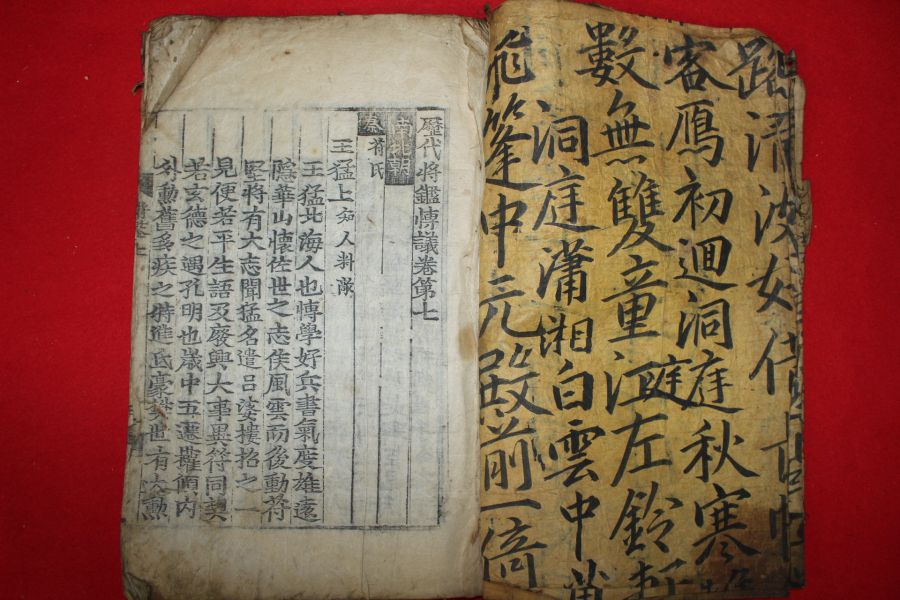 淸波女
客鴈初迴洞庭秋寒
數無雙童江左鈴軒
洞庭瀟湘白雲中
飛篷申元殿前一倚
歷代將鑑愽議卷第七
南北朝
秦 苻氏
王猛上 知人料敵
王猛北海人也愽學好兵書氣度雄遠
隱華山懷佐世之志俟風雲而後動苻
堅將有大志聞猛名遣呂婆樓招之一
見便若平生語及廢興大事異符同契
若玄德之遇孔明也歲中五遷權傾内
外勳舊多疾之特進氐豪樊世有大勳